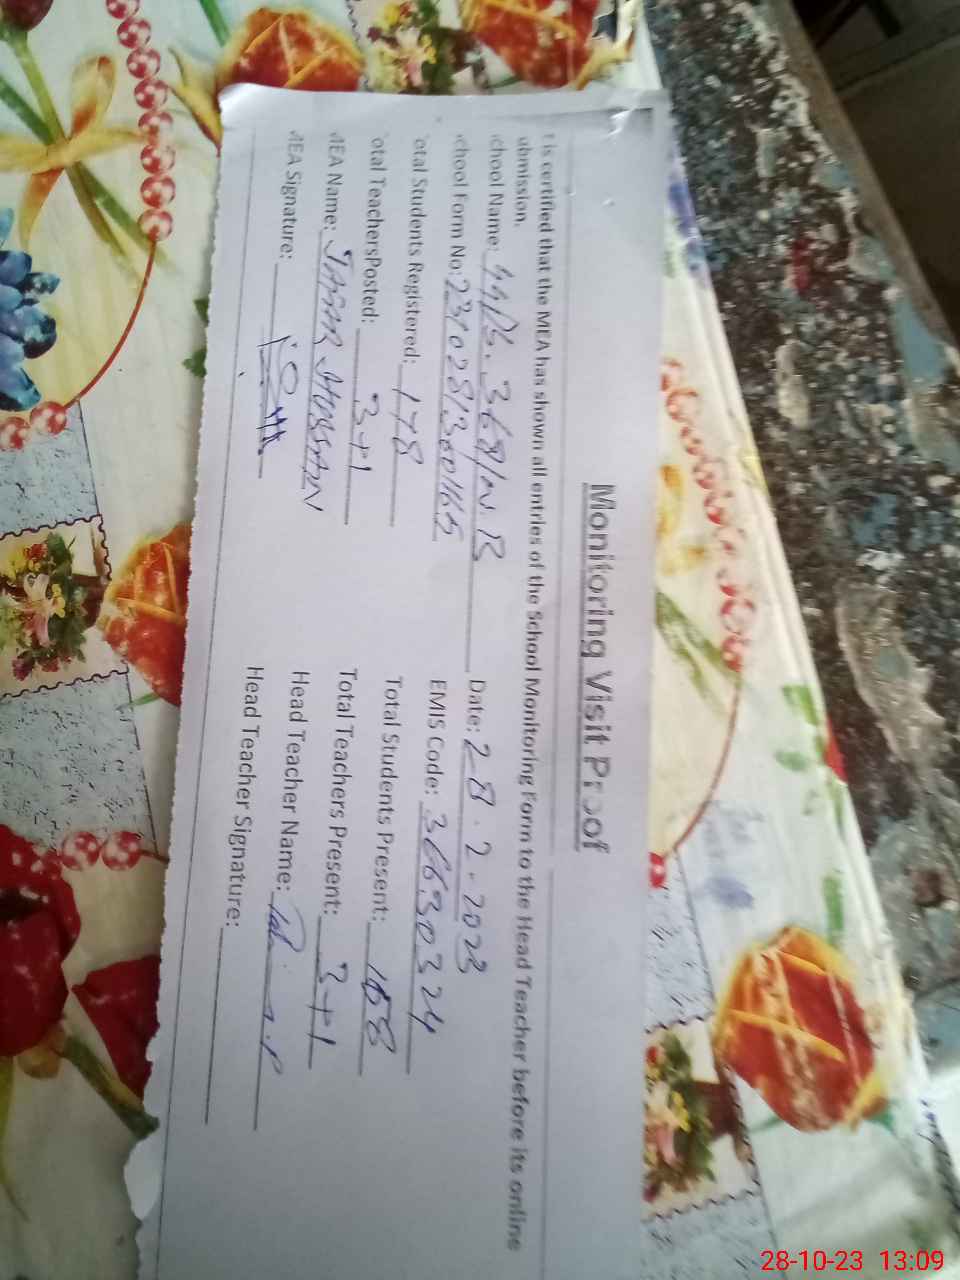 Monitoring Visit Proof
t is certified that the MEA has shown all entries of the School Monitoring Form to the Head Teacher before its online
ubmission.
chool Name: 368/W.B Date: 28.2.2023
chool Form No: EMIS Code: 36630324
otal Students Registered: 178 Total Students Present: 168
otal TeachersPosted: 3+1 Total Teachers Present: 3+1
MEA Name: Head Teacher Name:
MEA Signature: Head Teacher Signature:
28-10-23 13:09